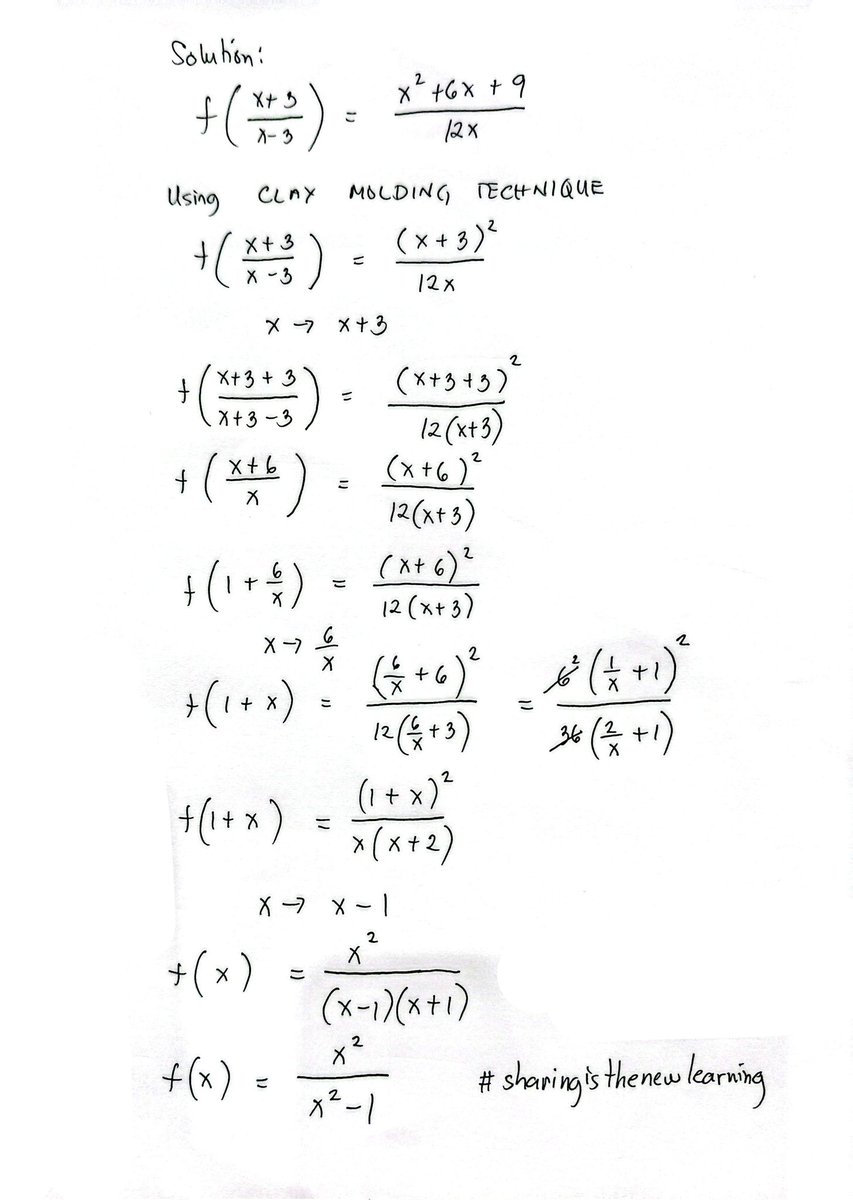 Solution:
f((x+3)/(x-3)) = (x²+6x+9)/(12x)
Using CLAY MOLDING TECHNIQUE
f((x+3)/(x-3)) = (x+3)²/(12x)
x → x+3
f((x+3+3)/(x+3-3)) = (x+3+3)²/(12(x+3))
f((x+6)/x) = (x+6)²/(12(x+3))
f(1+6/x) = (x+6)²/(12(x+3))
x → 6/x
f(1+x) = (6/x+6)²/(12(6/x+3)) = 6²(1/x+1)²/(36(2/x+1))
f(1+x) = (1+x)²/(x(x+2))
x → x-1
f(x) = x²/((x-1)(x+1))
f(x) = x²/(x²-1)
# sharing is the new learning